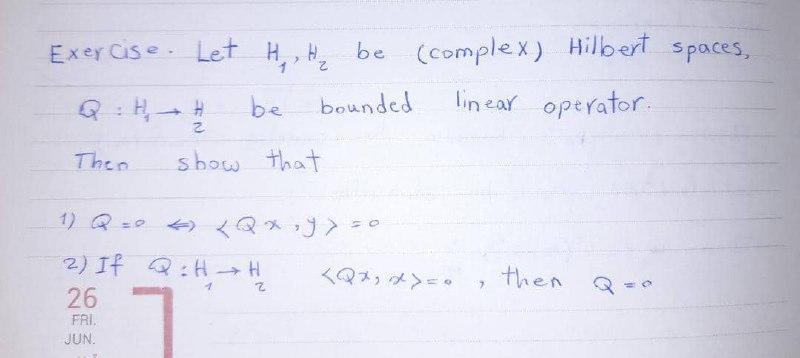 Exercise. Let H₁, H₂ be (complex) Hilbert spaces,
Q : H₁ → H₂ be bounded linear operator.
Then show that
1) Q=0 ⇔ ⟨Qx, y⟩=0
2) If Q : H₁ → H₂ ⟨Qx, x⟩=0, then Q=0
26
FRI.
JUN.